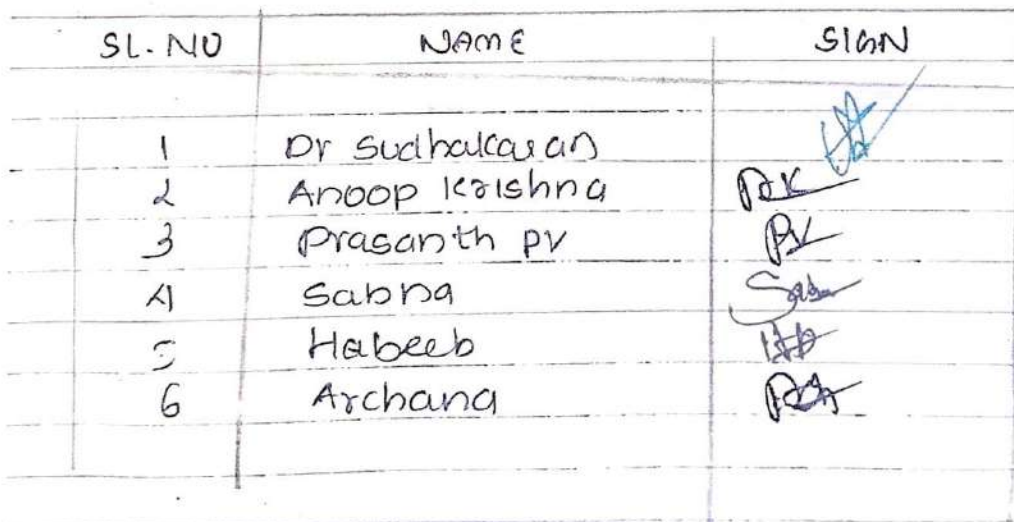 SL. NO NAME SIGN
1 Dr Sudhakaran
2 Anoop Krishna
3 Prasanth PV PV
4 Sabna
5 Habeeb
6 Archana